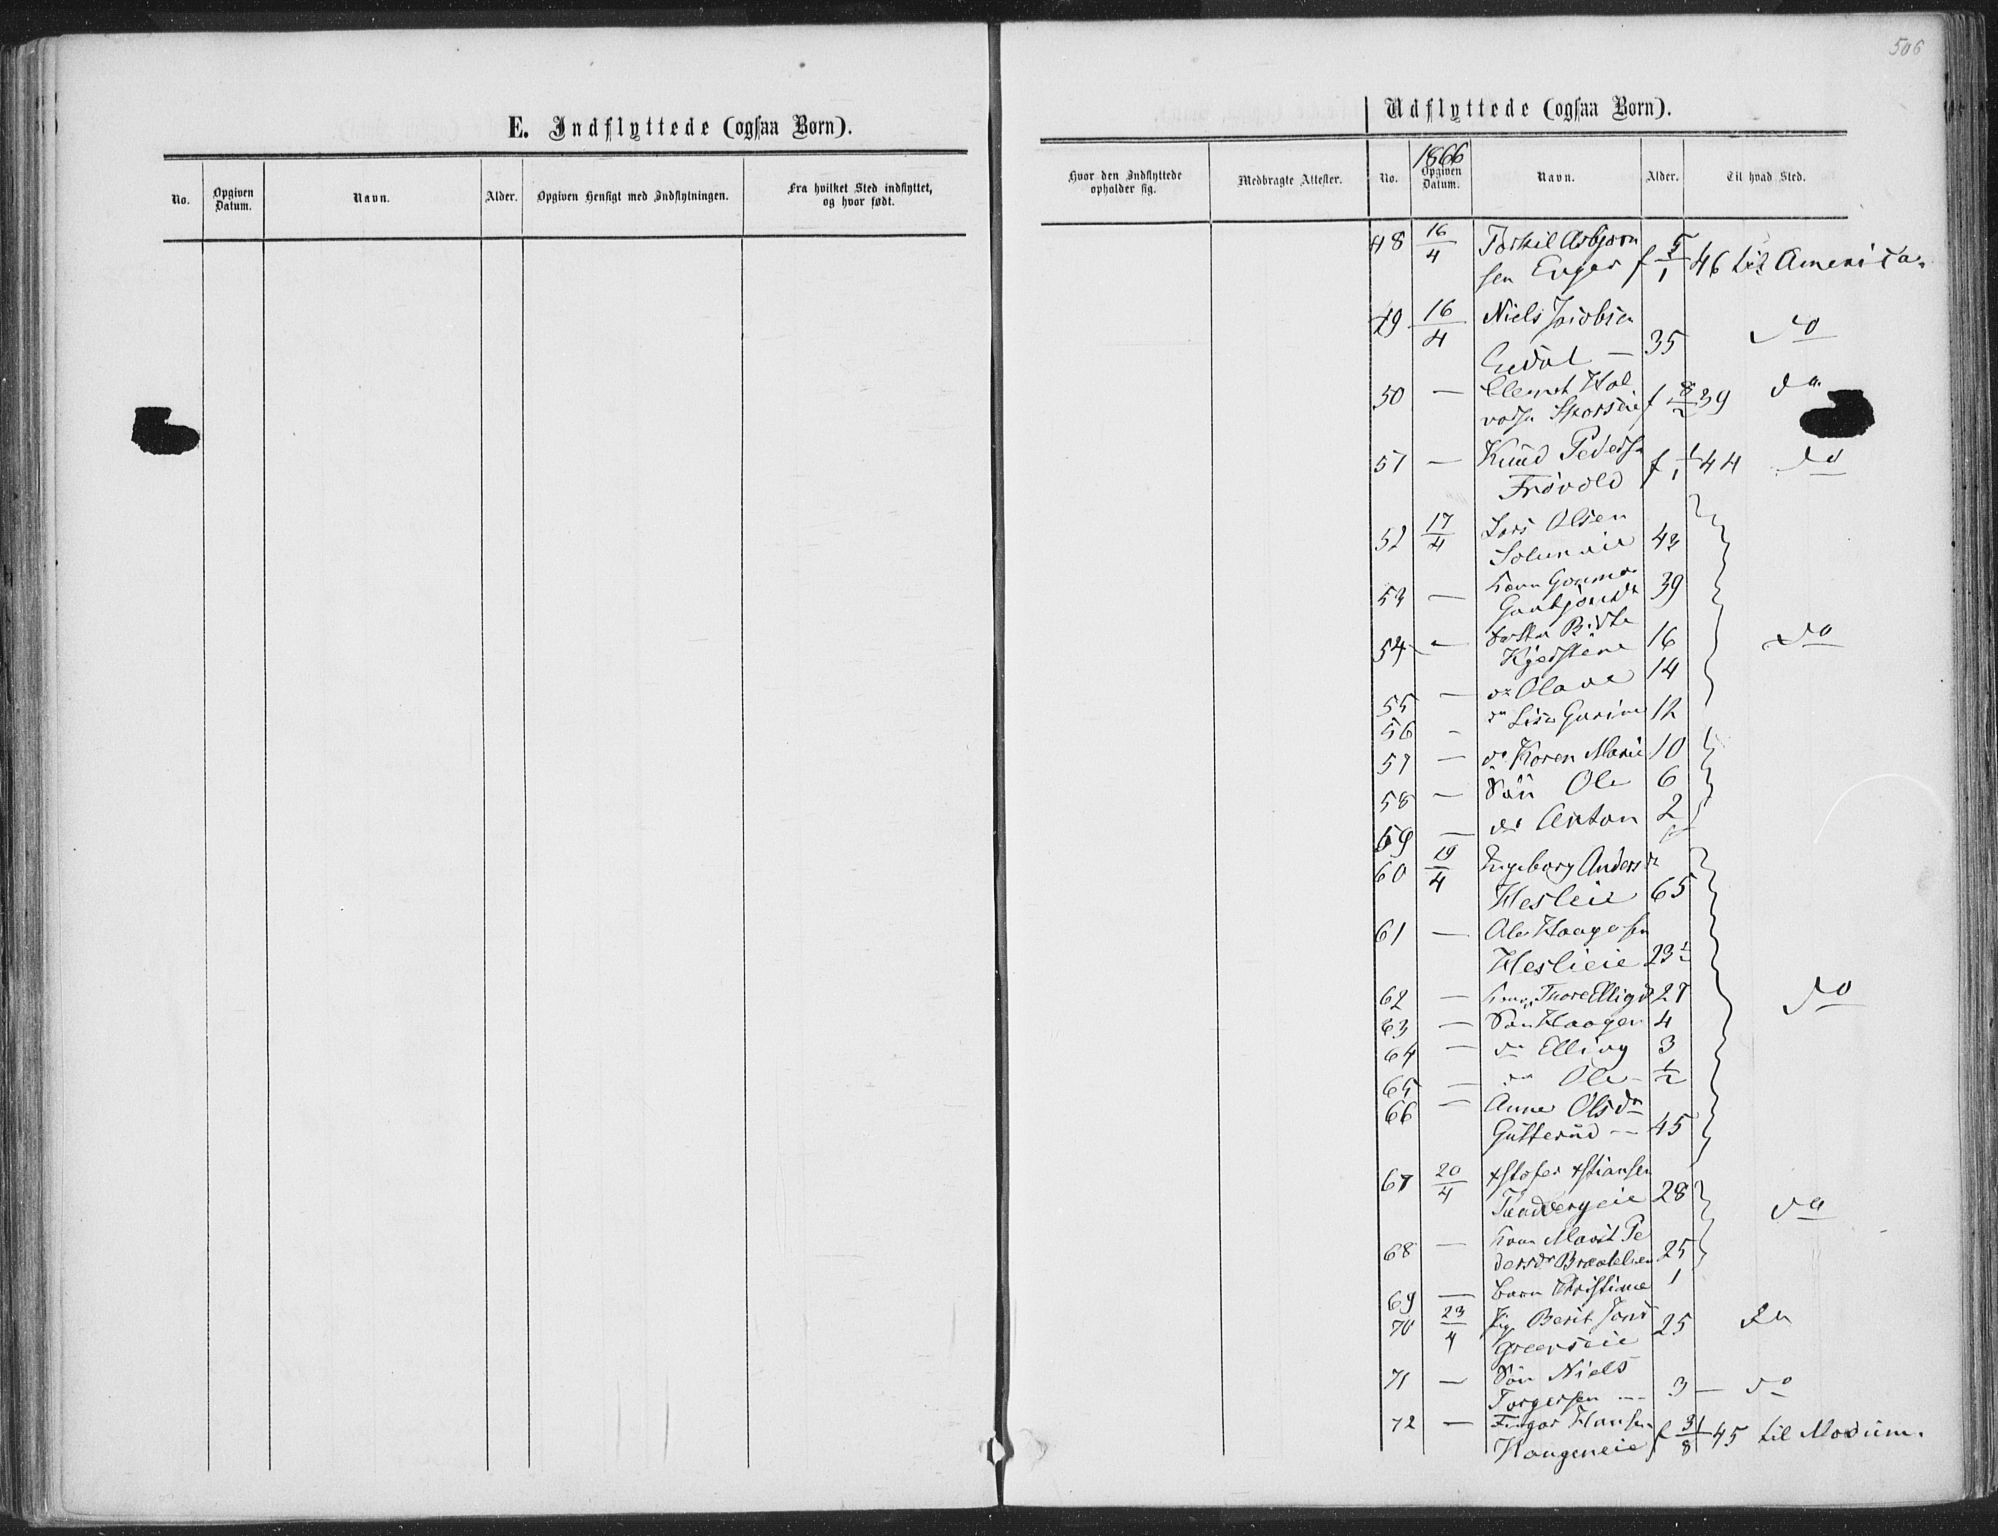 506
E. Indflyttede (ogsaa Børn).
Udflyttede (ogsaa Børn).
No. Opgiven Datum. Navn. Alder. Opgiven Hensigt med Indflytningen. Fra hvilket Sted indflyttet, og hvor født.
Hvor den Indflyttede opholder sig. Medbragte Attester. No. 1866 Opgiven Datum. Navn. Alder. Til hvad Sted.
48 16/4 Torkil Asbjørn
sen Enger f 5/1 46 til America.
49 16/4 Niels Jacobsen
35 do
50 — Hal
vorsen f 8/2 39 do
51 — Knud Pedersen
Frøvold f 1/1 44 do
52 17/4 Lars Olsen
Solumeie 43
53 — kone Gunnor
39
54 —
Kjerstine 16 do
55 — do Olave 14
56 - do Lise Gurine 12
57 — do Karen Marie 10
58 — Søn Ole 6
59 — do Anton 2
60 19/4 Ingeborg Andersdr
Heslieie 65
61 — Ole Haagensen
Heslieie 23 1/2
62 — kone Thore Ellingsd 27 do
63 — Søn Haagen 4
64 — do Elling 3
65 — do Ole - 1/2
66 — Anne Olsdr
Gutterud — 45
67 20/4 Xstofer Xstiansen
Tandbergeie 28 do
68 — kone Marit Pe
dersdr 25
69 — barn Christiane 1
70 23/4 Pig Berit Jons
25 do
71 — Søn Niels
Torgersen — 3 — do
72 — Hansen
Haugeneie f 31/8 45 til Modum.